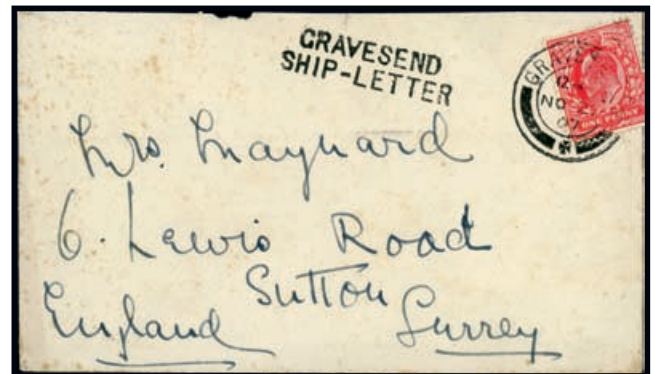 GRAVESEND
SHIP-LETTER
NO
07
ONE PENNY
Mrs. Maynard
6. Lewis Road
Sutton
England Surrey